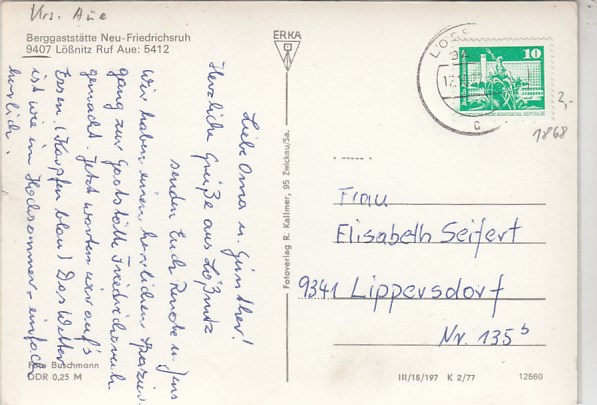 Krs. Aue
Berggaststätte Neu-Friedrichsruh
9407 Lößnitz Ruf Aue: 5412
ERKA
Liebe Oma u. Günther!
Herzliche Grüße aus Lößnitz
senden Euch Renate u. Jens
Wir haben einen herrlichen Spazier-
gang zur Gaststätte Friedrichsruh
gemacht. Jetzt warten wir auf's
Essen (Karpfen blau) Das Wetter
ist wie im Hochsommer - einfach
herrlich.
Foto Buschmann
DDR 0,25 M
Fotoverlag R. Kallmer, 95 Zwickau/Sa.
10
DEUTSCHE DEMOKRATISCHE REPUBLIK
c
2,-
1868
Frau
Elisabeth Seifert
9341 Lippersdorf
Nr. 135b
III/18/197 K 2/77
12560